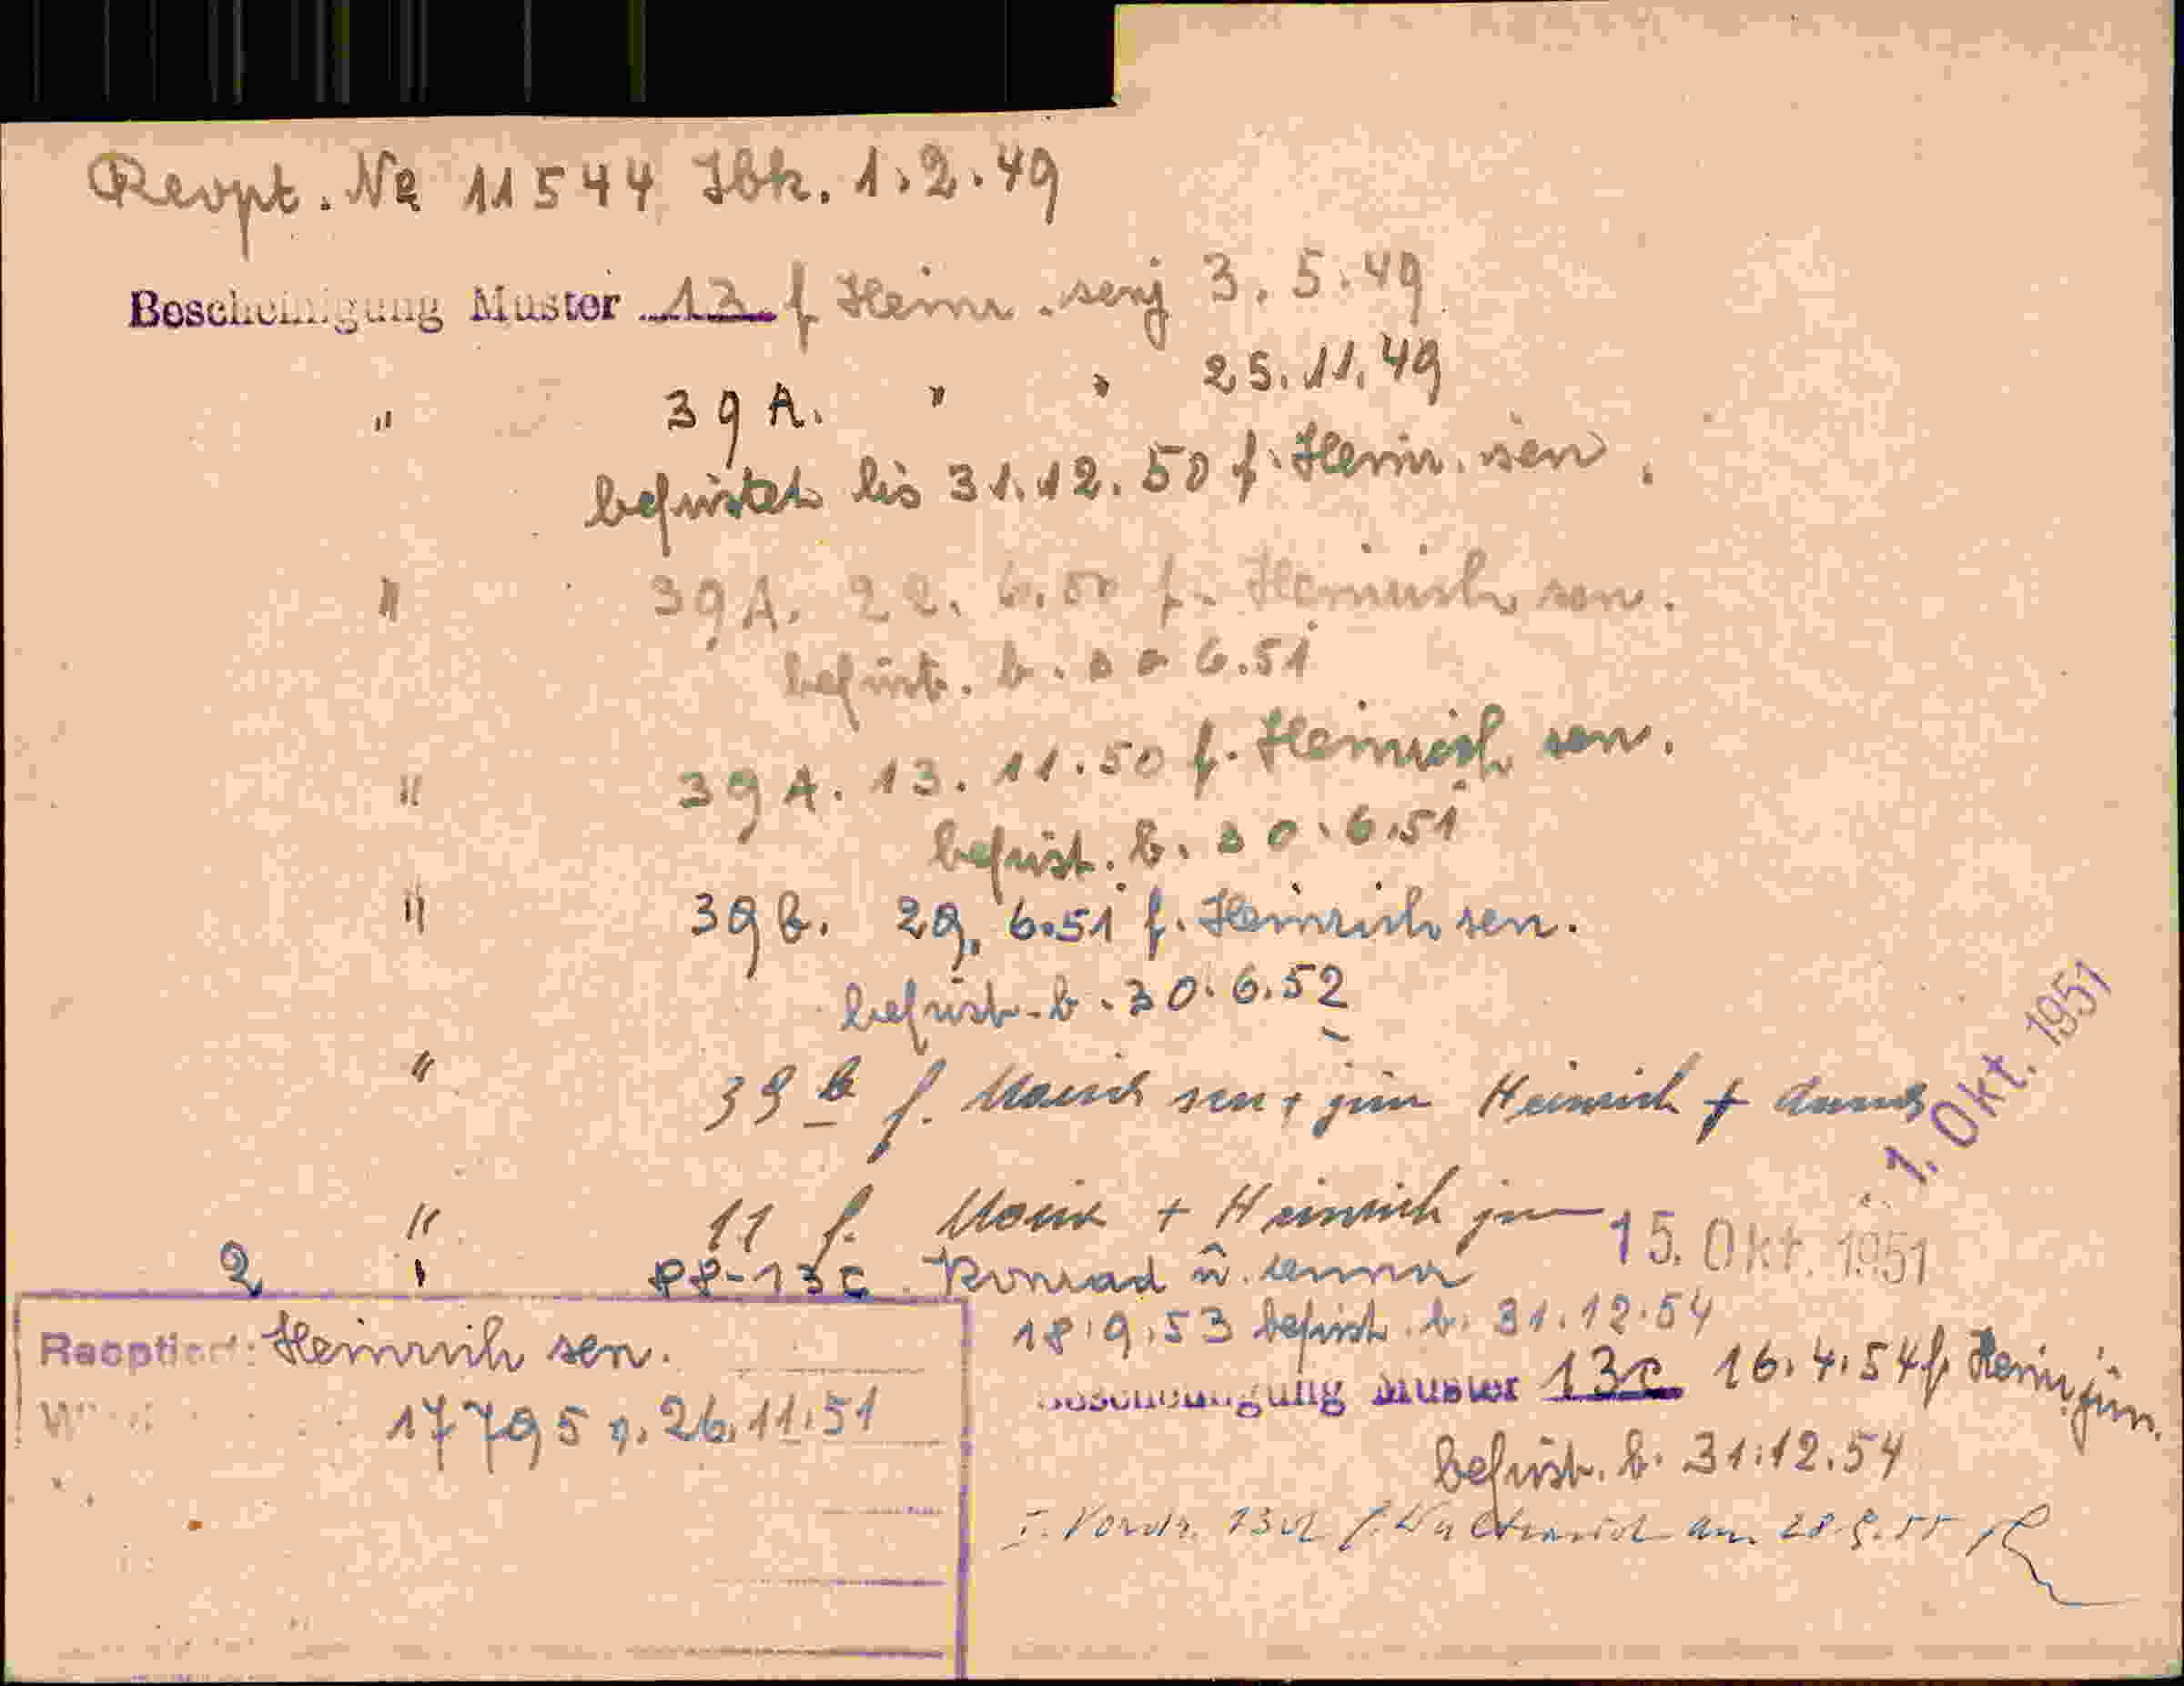 Reopt. No 11544 Ibk. 1.2.49
Bescheinigung Muster 13 f Heinr. sen 3.5.49
" 39 A. " " 25.11.49
befristet bis 31.12.50 f. Heinr. sen.
" 39 A. 22.6.50 f. Heinrich sen.
befrist. b. 30.6.51
" 39 A. 13.11.50 f. Heinrich sen.
befrist. b. 30.6.51
" 39 b. 29.6.51 f. Heinrich sen.
befrist. b. 30.6.52
" 39 b f. sen + jun Heinrich + 1. Okt. 1951
" 11 f. + Heinrich jun 15. Okt. 1951
2 " 13 c Konrad u.
18.9.53 befrist. b. 31.12.54
Reoptiert: Heinrich sen.
17795 v. 26.11.51
Bescheinigung Muster 13c 16.4.54 f. Heinr. jun.
befrist. b. 31.12.54
am 28.9.55